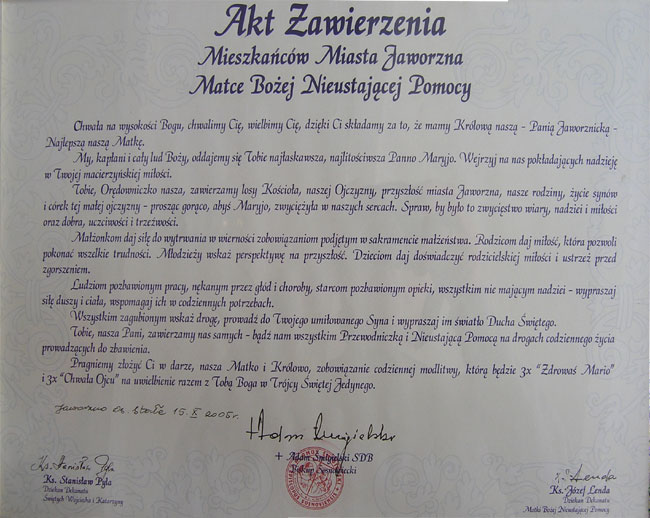 Akt Zawierzenia
Mieszkańców Miasta Jaworzna
Matce Bożej Nieustającej Pomocy
Chwała na wysokości Bogu, chwalimy Cię, wielbimy Cię, dzięki Ci składamy za to, że mamy Królową naszą - Panią Jaworznicką -
Najlepszą naszą Matkę.
My, kapłani i cały lud Boży, oddajemy się Tobie najłaskawsza, najlitościwsza Panno Maryjo. Wejrzyj na nas pokładających nadzieję
w Twojej macierzyńskiej miłości.
Tobie, Orędowniczko nasza, zawierzamy losy Kościoła, naszej Ojczyzny, przyszłość miasta Jaworzna, nasze rodziny, życie synów
i córek tej małej ojczyzny - prosząc gorąco, abyś Maryjo, zwyciężyła w naszych sercach. Spraw, by było to zwycięstwo wiary, nadziei i miłości
oraz dobra, uczciwości i trzeźwości.
Małżonkom daj siłę do wytrwania w wierności zobowiązaniom podjętym w sakramencie małżeństwa. Rodzicom daj miłość, która pozwoli
pokonać wszelkie trudności. Młodzieży wskaż perspektywę na przyszłość. Dzieciom daj doświadczyć rodzicielskiej miłości i ustrzeż przed
zgorszeniem.
Ludziom pozbawionym pracy, nękanym przez głód i choroby, starcom pozbawionym opieki, wszystkim nie mającym nadziei - wypraszaj
siłę duszy i ciała, wspomagaj ich w codziennych potrzebach.
Wszystkim zagubionym wskaż drogę, prowadź do Twojego umiłowanego Syna i wypraszaj im światło Ducha Świętego.
Tobie, nasza Pani, zawierzamy nas samych - bądź nam wszystkim Przewodniczką i Nieustającą Pomocą na drogach codziennego życia
prowadzących do zbawienia.
Pragniemy złożyć Ci w darze, nasza Matko i Królowo, zobowiązanie codziennej modlitwy, którą będzie 3x "Zdrowaś Mario"
i 3x "Chwała Ojcu" na uwielbienie razem z Tobą Boga w Trójcy Świętej Jedynego.
Jaworzno 15. X 2005r.
+ Adam Śmigielski SDB
Biskup Sosnowiecki
Ks. Stanisław Pyla
Ks. Stanisław Pyla
Dziekan Dekanatu
Świętych Wojciecha i Katarzyny
Lenda
Ks. Józef Lenda
Dziekan Dekanatu
Matki Bożej Nieustającej Pomocy